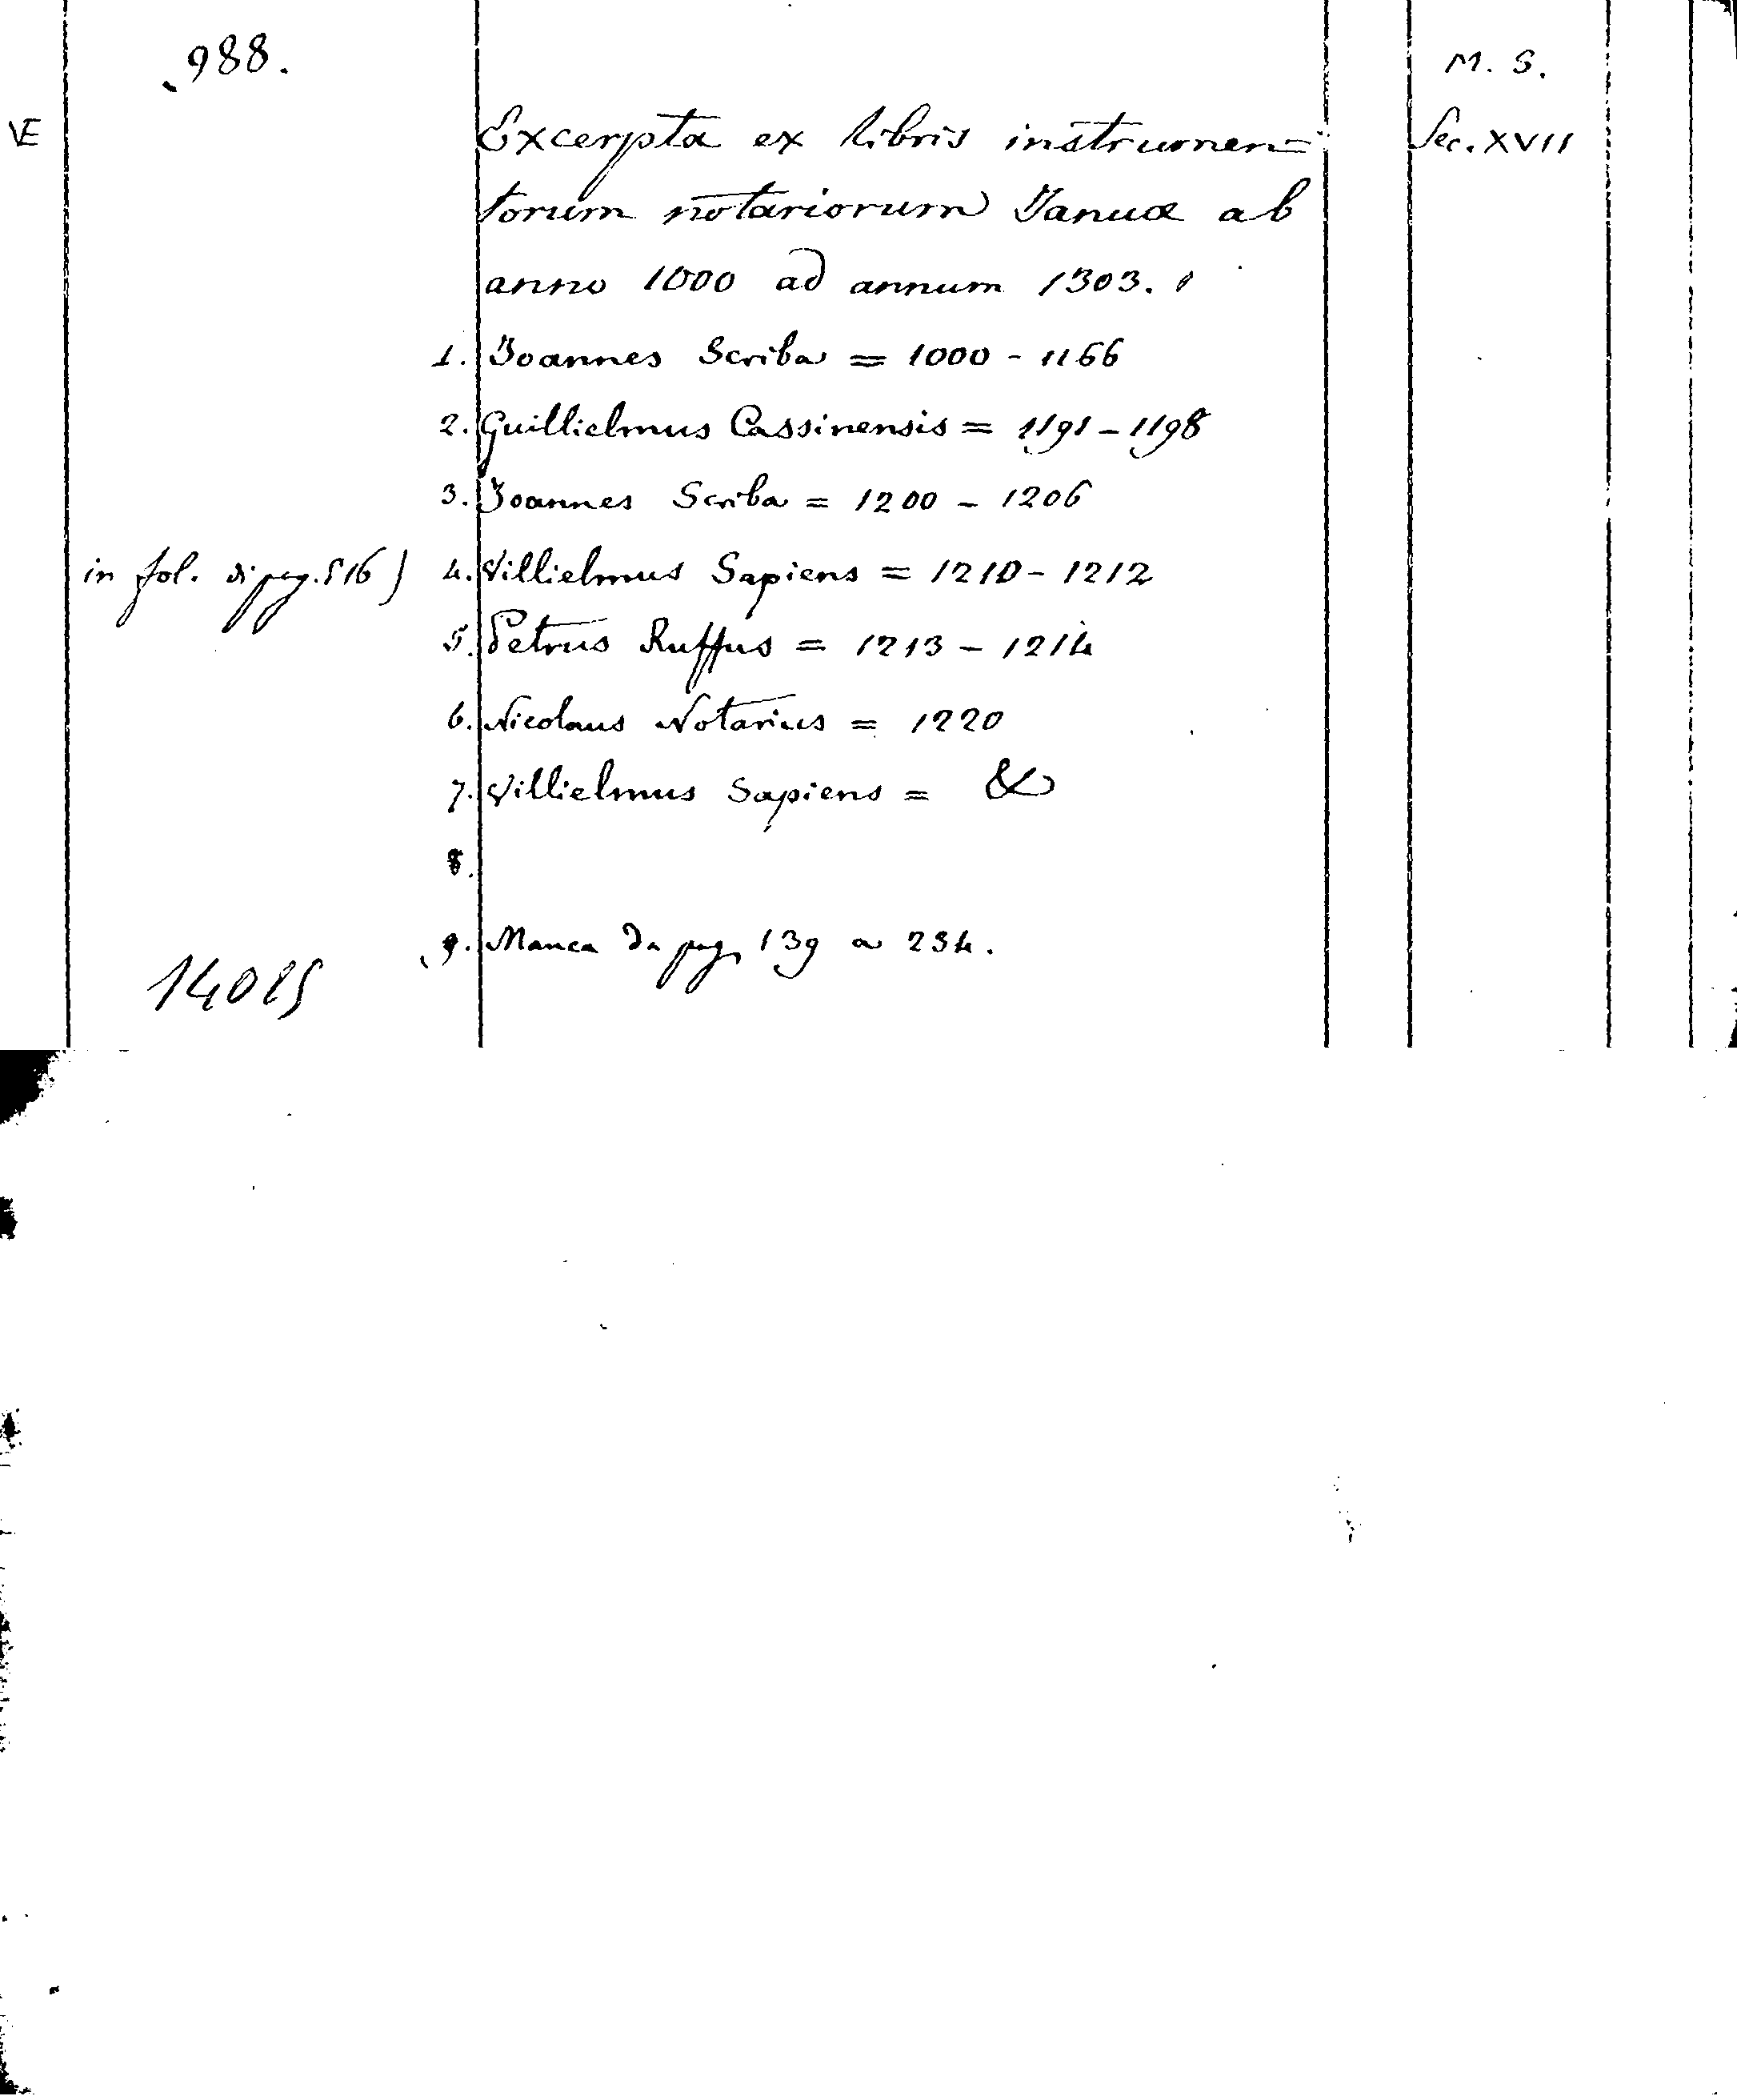 988.
M. S.
VE
Excerpta ex libris instrumen=
Sec. XVII
torum notariorum Januæ ab
anno 1000 ad annum 1303.
1. Joannes Scriba = 1000 - 1166
2. Guillielmus Cassinensis = 1191 - 1198
3. Joannes Scriba = 1200 - 1206
in fol. di pag. 516) 4. Villielmus Sapiens = 1210 - 1212
5. Petrus Ruffus = 1213 - 1214
6. Nicolaus Notarius = 1220
7. Villielmus Sapiens = &
8.
9. Manca da pag. 139 a 234.